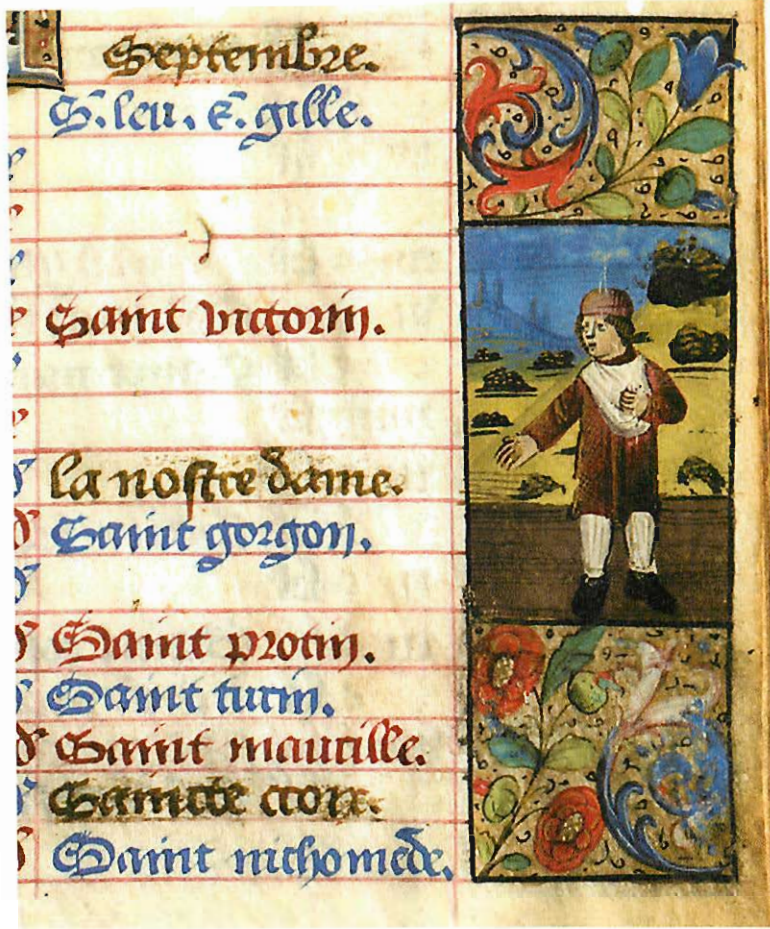 Septembre.
S. leu. S. gille.
Saint victorin.
la nostre dame.
Saint gorgon.
Saint protin.
Saint turin.
Saint maurille.
Saincte croix.
Saint nichomede.